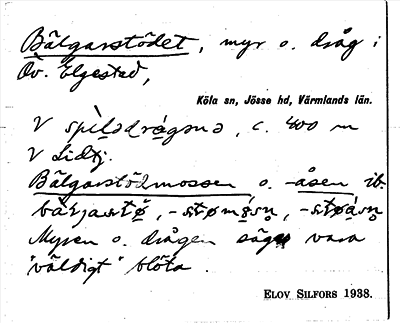 Bälgarstödet, myr o. dråg i
Öv. Elgestad,
Köla sn, Jösse hd, Värmlands län.
V spilsdrågsna, c. 400 m
V Lidtj.
Bälgarstödmossen o. -åsen ib.
Myren o. drågen säges vara
"väldigt" blöta.
ELOV SILFORS 1938.